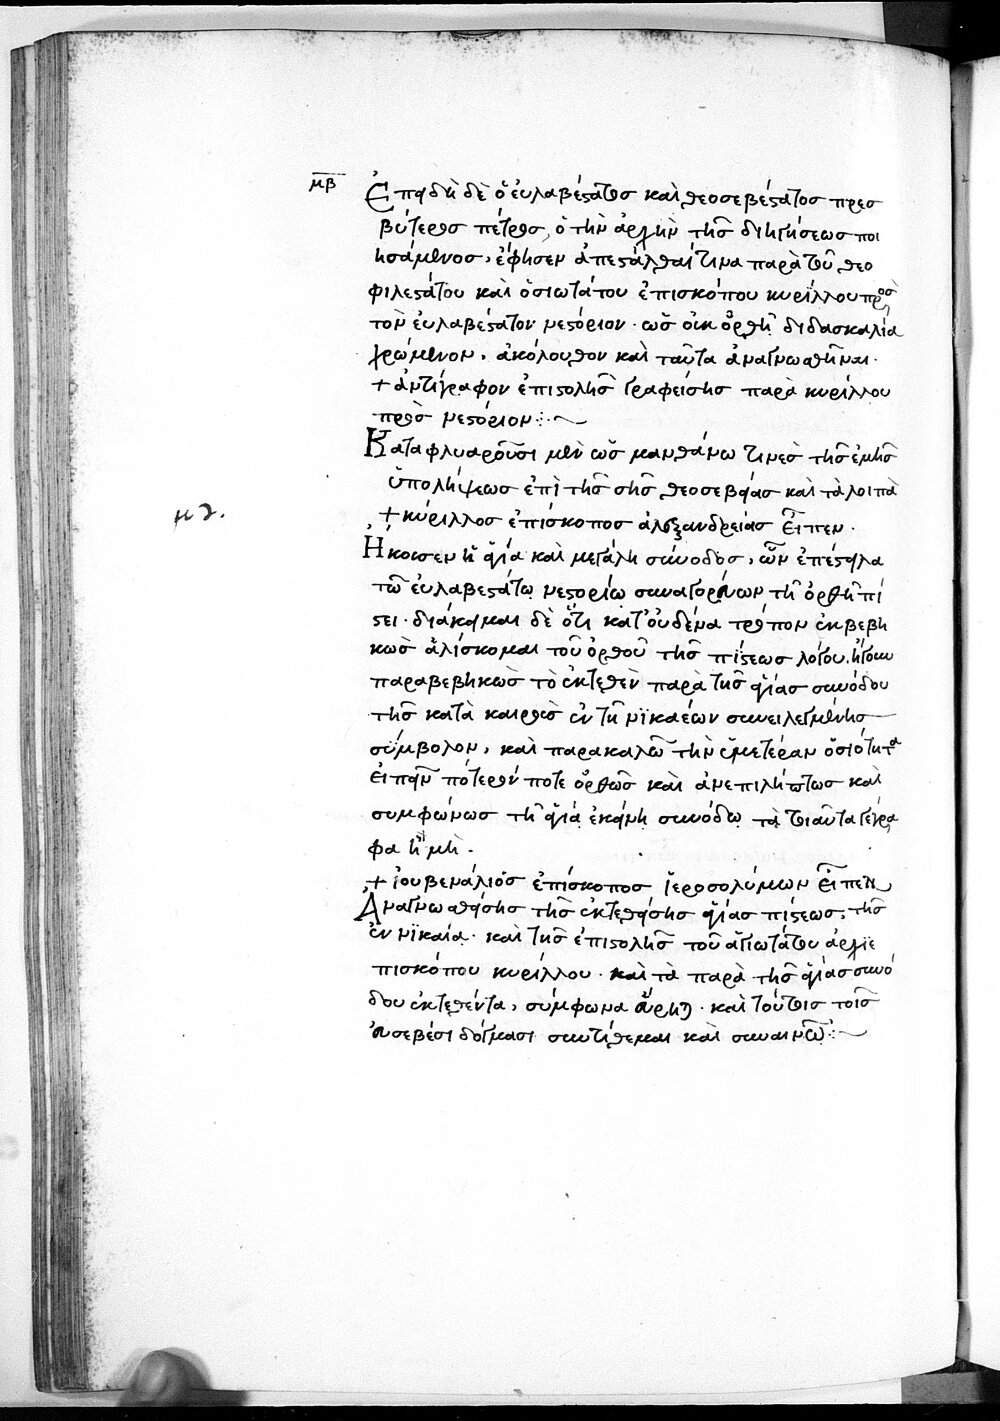 μβ
Ἐπειδὴ δὲ ὁ εὐλαβέστατος καὶ θεοσεβέστατος πρεσ
βύτερος πέτρος, ὁ τὴν ἀρχὴν τῆς διηγήσεως ποι
ησάμενος, ἔφησεν ἀπεστάλθαί τινα παρὰ τοῦ θεο
φιλεστάτου καὶ ὁσιωτάτου ἐπισκόπου κυρίλλου πρὸς
τὸν εὐλαβέστατον νεστόριον· ὡς οὐκ ὀρθῇ διδασκαλία
χρώμενον, ἀκόλουθον καὶ ταῦτα ἀναγνωσθῆναι·
+ ἀντίγραφον ἐπιστολῆς γραφείσης παρὰ κυρίλλου
πρὸς νεστόριον:~
Καταφλυαροῦσι μὲν ὡς μανθάνω τινὲς τῆς ἐμῆς
ὑπολήψεως ἐπὶ τῆς σῆς θεοσεβείας καὶ τὰ λοιπὰ
+ κύριλλος ἐπίσκοπος ἀλεξανδρείας εἶπεν·
Ἤκουσεν ἡ ἁγία καὶ μεγάλη σύνοδος, ὧν ἐπέστειλα
τῶ εὐλαβεστάτω νεστορίω συναγορεύων τῇ ὀρθῇ πί
στει· διάκειμαι δὲ ὅτι κατ' οὐδένα τρόπον ἐκβεβη
κὼς ἁλίσκομαι τοῦ ὀρθοῦ τῆς πίστεως λόγου, ἤγουν
παραβεβηκὼς τὸ ἐκτεθὲν παρὰ τῆς ἁγίας συνόδου
τῆς κατὰ καιροὺς ἐν τῇ νϊκαέων συνειλεγμένης
σύμβολον, καὶ παρακαλῶ τὴν ὑμετέραν ὁσιότητα
εἰπεῖν πότερόν ποτε ὀρθῶς καὶ ἀνεπιλήπτως καὶ
συμφώνως τῇ ἁγίᾳ ἐκείνη συνόδω τὰ τοιαῦτα γέγρα
φα ἢ μή·
+ ἰουβενάλιος ἐπίσκοπος ἱεροσολύμων εἶπεν
Ἀναγνωσθείσης τῆς ἐκτεθείσης ἁγίας πίστεως, τῆς
ἐν νϊκαία· καὶ τῆς ἐπιστολῆς τοῦ ἁγιωτάτου ἀρχϊε
πισκόπου κυρίλλου· καὶ τὰ παρὰ τῆς ἁγίας συνό
δου ἐκτεθέντα, σύμφωνα εὕρηται· καὶ τούτοις τοῖς
εὐσεβέσι δόγμασι συντίθεμαι καὶ συναινῶ:~